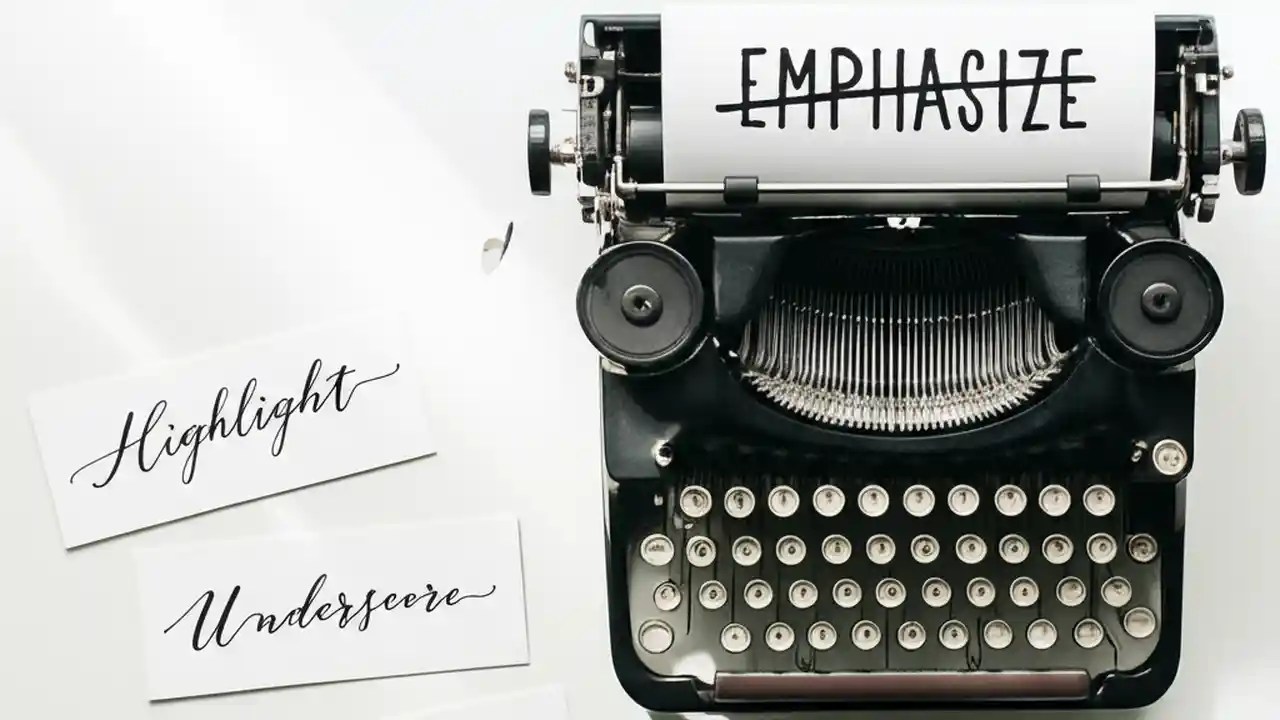 EMPHASIZE
Highlight
Underscore